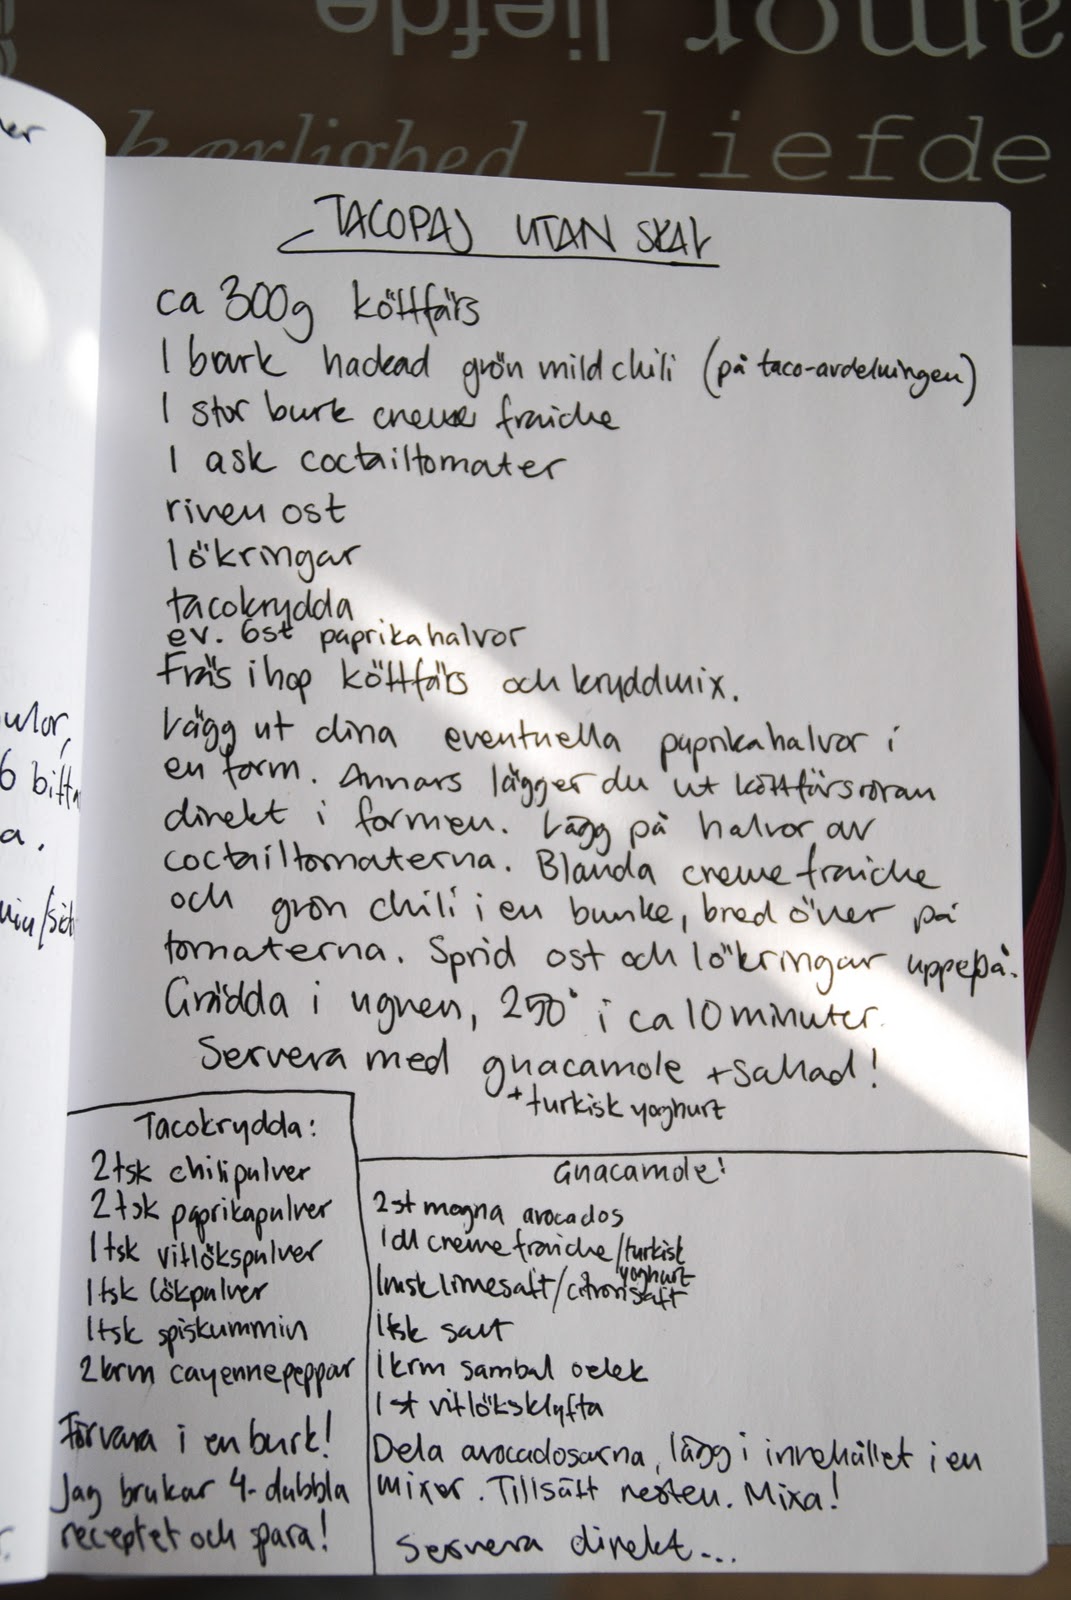 amor liefde
kærlighed liefde
ler
TACOPAJ UTAN SKAL
ca 300g köttfärs
1 burk hackad grön mild chili (på taco-avdelningen)
1 stor burk creme fraiche
1 ask coctailtomater
riven ost
lökringar
tacokrydda
ev. 6st paprikahalvor
Fräs ihop köttfärs och kryddmix.
Lägg ut dina eventuella paprikahalvor i
en form. Annars lägger du ut köttfärsröran
direkt i formen. Lägg på halvor av
coctailtomaterna. Blanda creme fraiche
och grön chili i en bunke, bred över på
tomaterna. Sprid ost och lökringar uppepå.
Grädda i ugnen, 250° i ca 10 minuter.
Servera med guacamole + sallad!
+ turkisk yoghurt
ulor,
6 biffa
a.
min/sid
Tacokrydda:
2 tsk chilipulver
2 tsk paprikapulver
1 tsk vitlökspulver
1 tsk lökpulver
1 tsk spiskummin
2 krm cayennepeppar
Förvara i en burk!
Jag brukar 4-dubbla
receptet och spara!
Guacamole!
2 st mogna avocados
1 dl creme fraiche/turkisk
yoghurt
1 msk limesaft/citronsaft
1 tsk salt
1 krm sambal oelek
1 st vitlöksklyfta
Dela avocadosarna, lägg i innehållet i en
mixer. Tillsätt resten. Mixa!
Servera direkt...